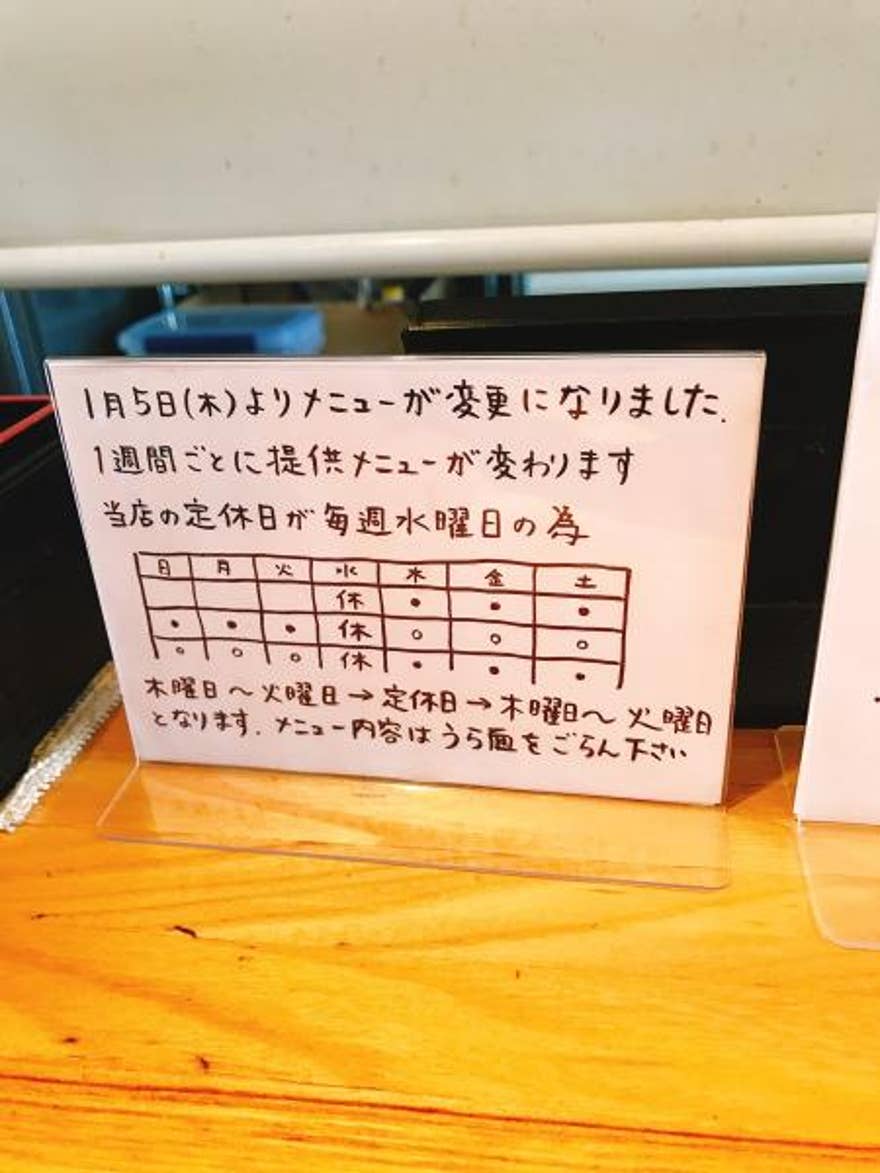 1月5日(木)よりメニューが変更になりました.
1週間ごとに提供メニューが変わります
当店の定休日が毎週水曜日の為
日 月 火 水 木 金 土
休 • • •
• • • 休 ○ ○ ○
○ ○ ○ 休 • • •
木曜日〜火曜日→定休日→木曜日〜火曜日
となります.メニュー内容はうら面をごらん下さい